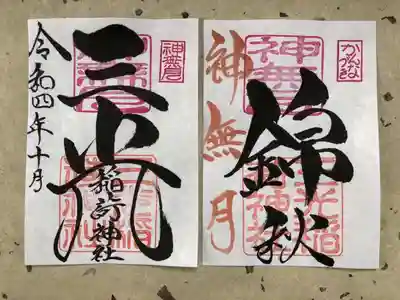 神無月
三光
稲荷神社
令和四年十月
かんなづき
神無月
錦秋
神無月